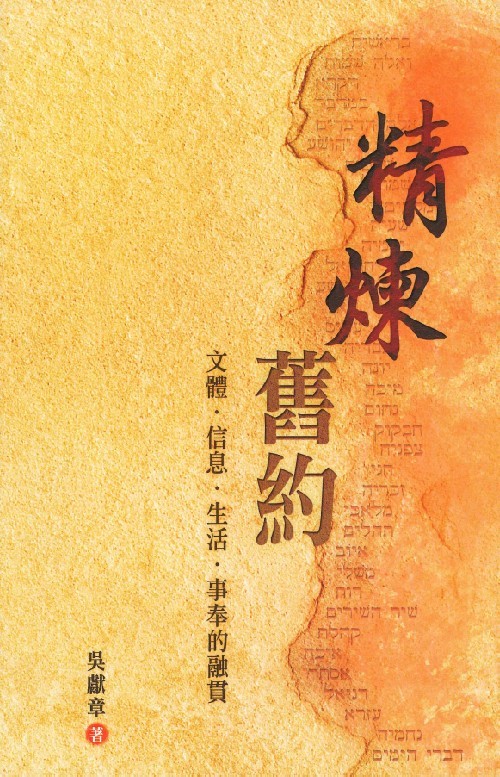 精煉
舊約
文體・信息・生活・事奉的融貫
吳獻章 著
בראשית
ואלה שמות
ויקרא
במדבר
יונה
מיכה
נחום
חבקוק
צפניה
חגי
זכריה
מלאכי
תהלים
איוב
משלי
רות
שיר השירים
קהלת
איכה
אסתר
דניאל
עזרא
נחמיה
דברי הימים